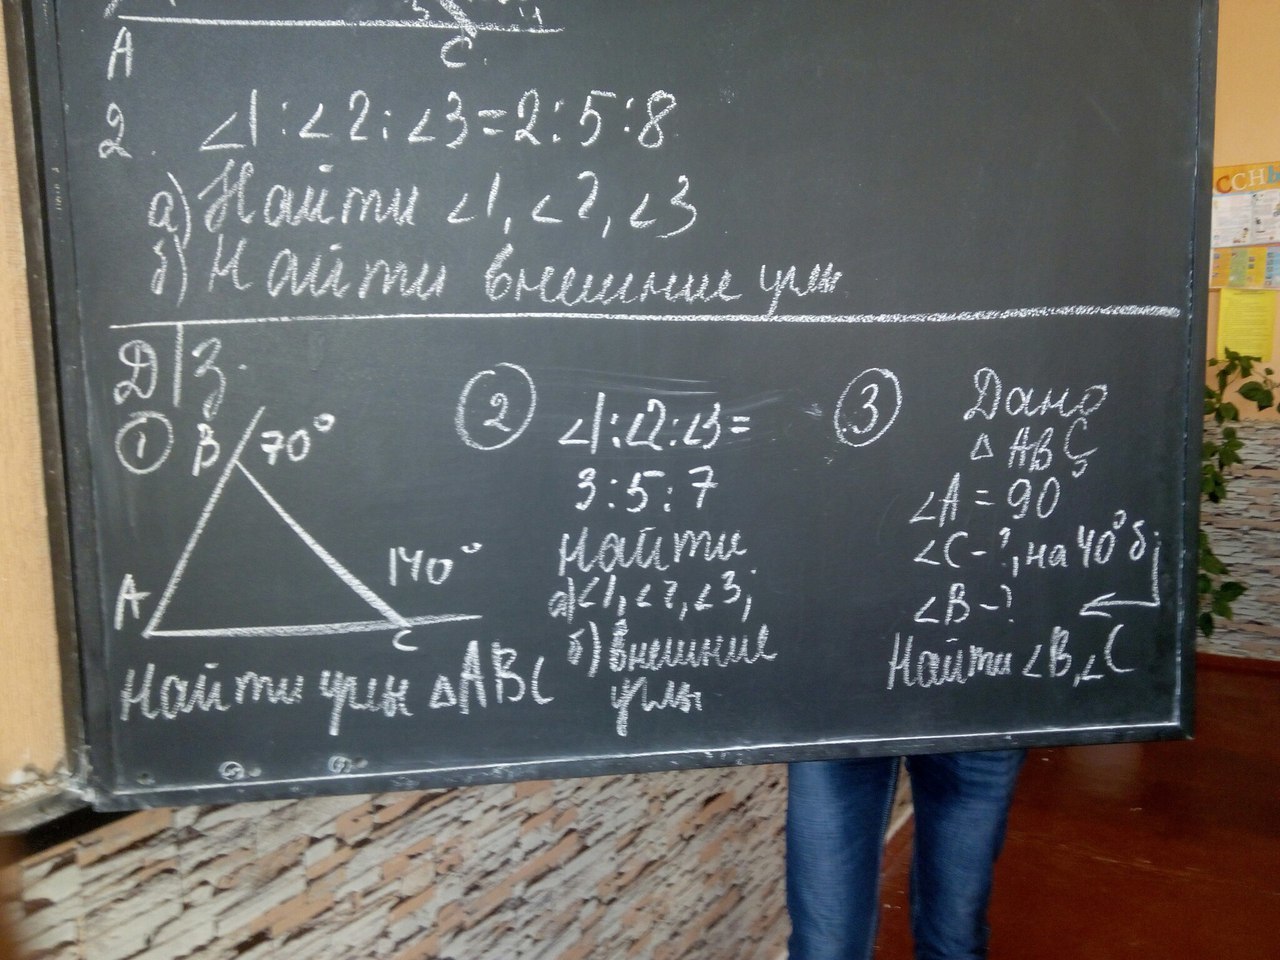 A
C
2. ∠1:∠2:∠3=2:5:8
а) Найти ∠1, ∠2, ∠3
б) Найти внешние углы
Д/З.
1
B 70°
140°
A
C
Найти углы ΔABC
2
∠1:∠2:∠3=
3:5:7
Найти
а) ∠1, ∠2, ∠3;
б) внешние
углы
3
Дано
ΔABC
∠A = 90
∠C - ?, на 40° б.
∠B - ?
Найти ∠B, ∠C